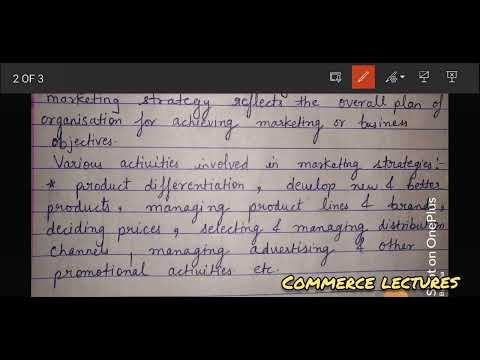 2 OF 3
marketing strategy reflects the overall plan of
organisation for achieving marketing or business
objectives.
Various activities involved in marketing strategies:-
* product differentiation, develop new & better
products, managing product lines & brands,
deciding prices, selecting & managing distribution
channels, managing advertising & other
promotional activities etc.
COMMERCE LECTURES
on OnePlus